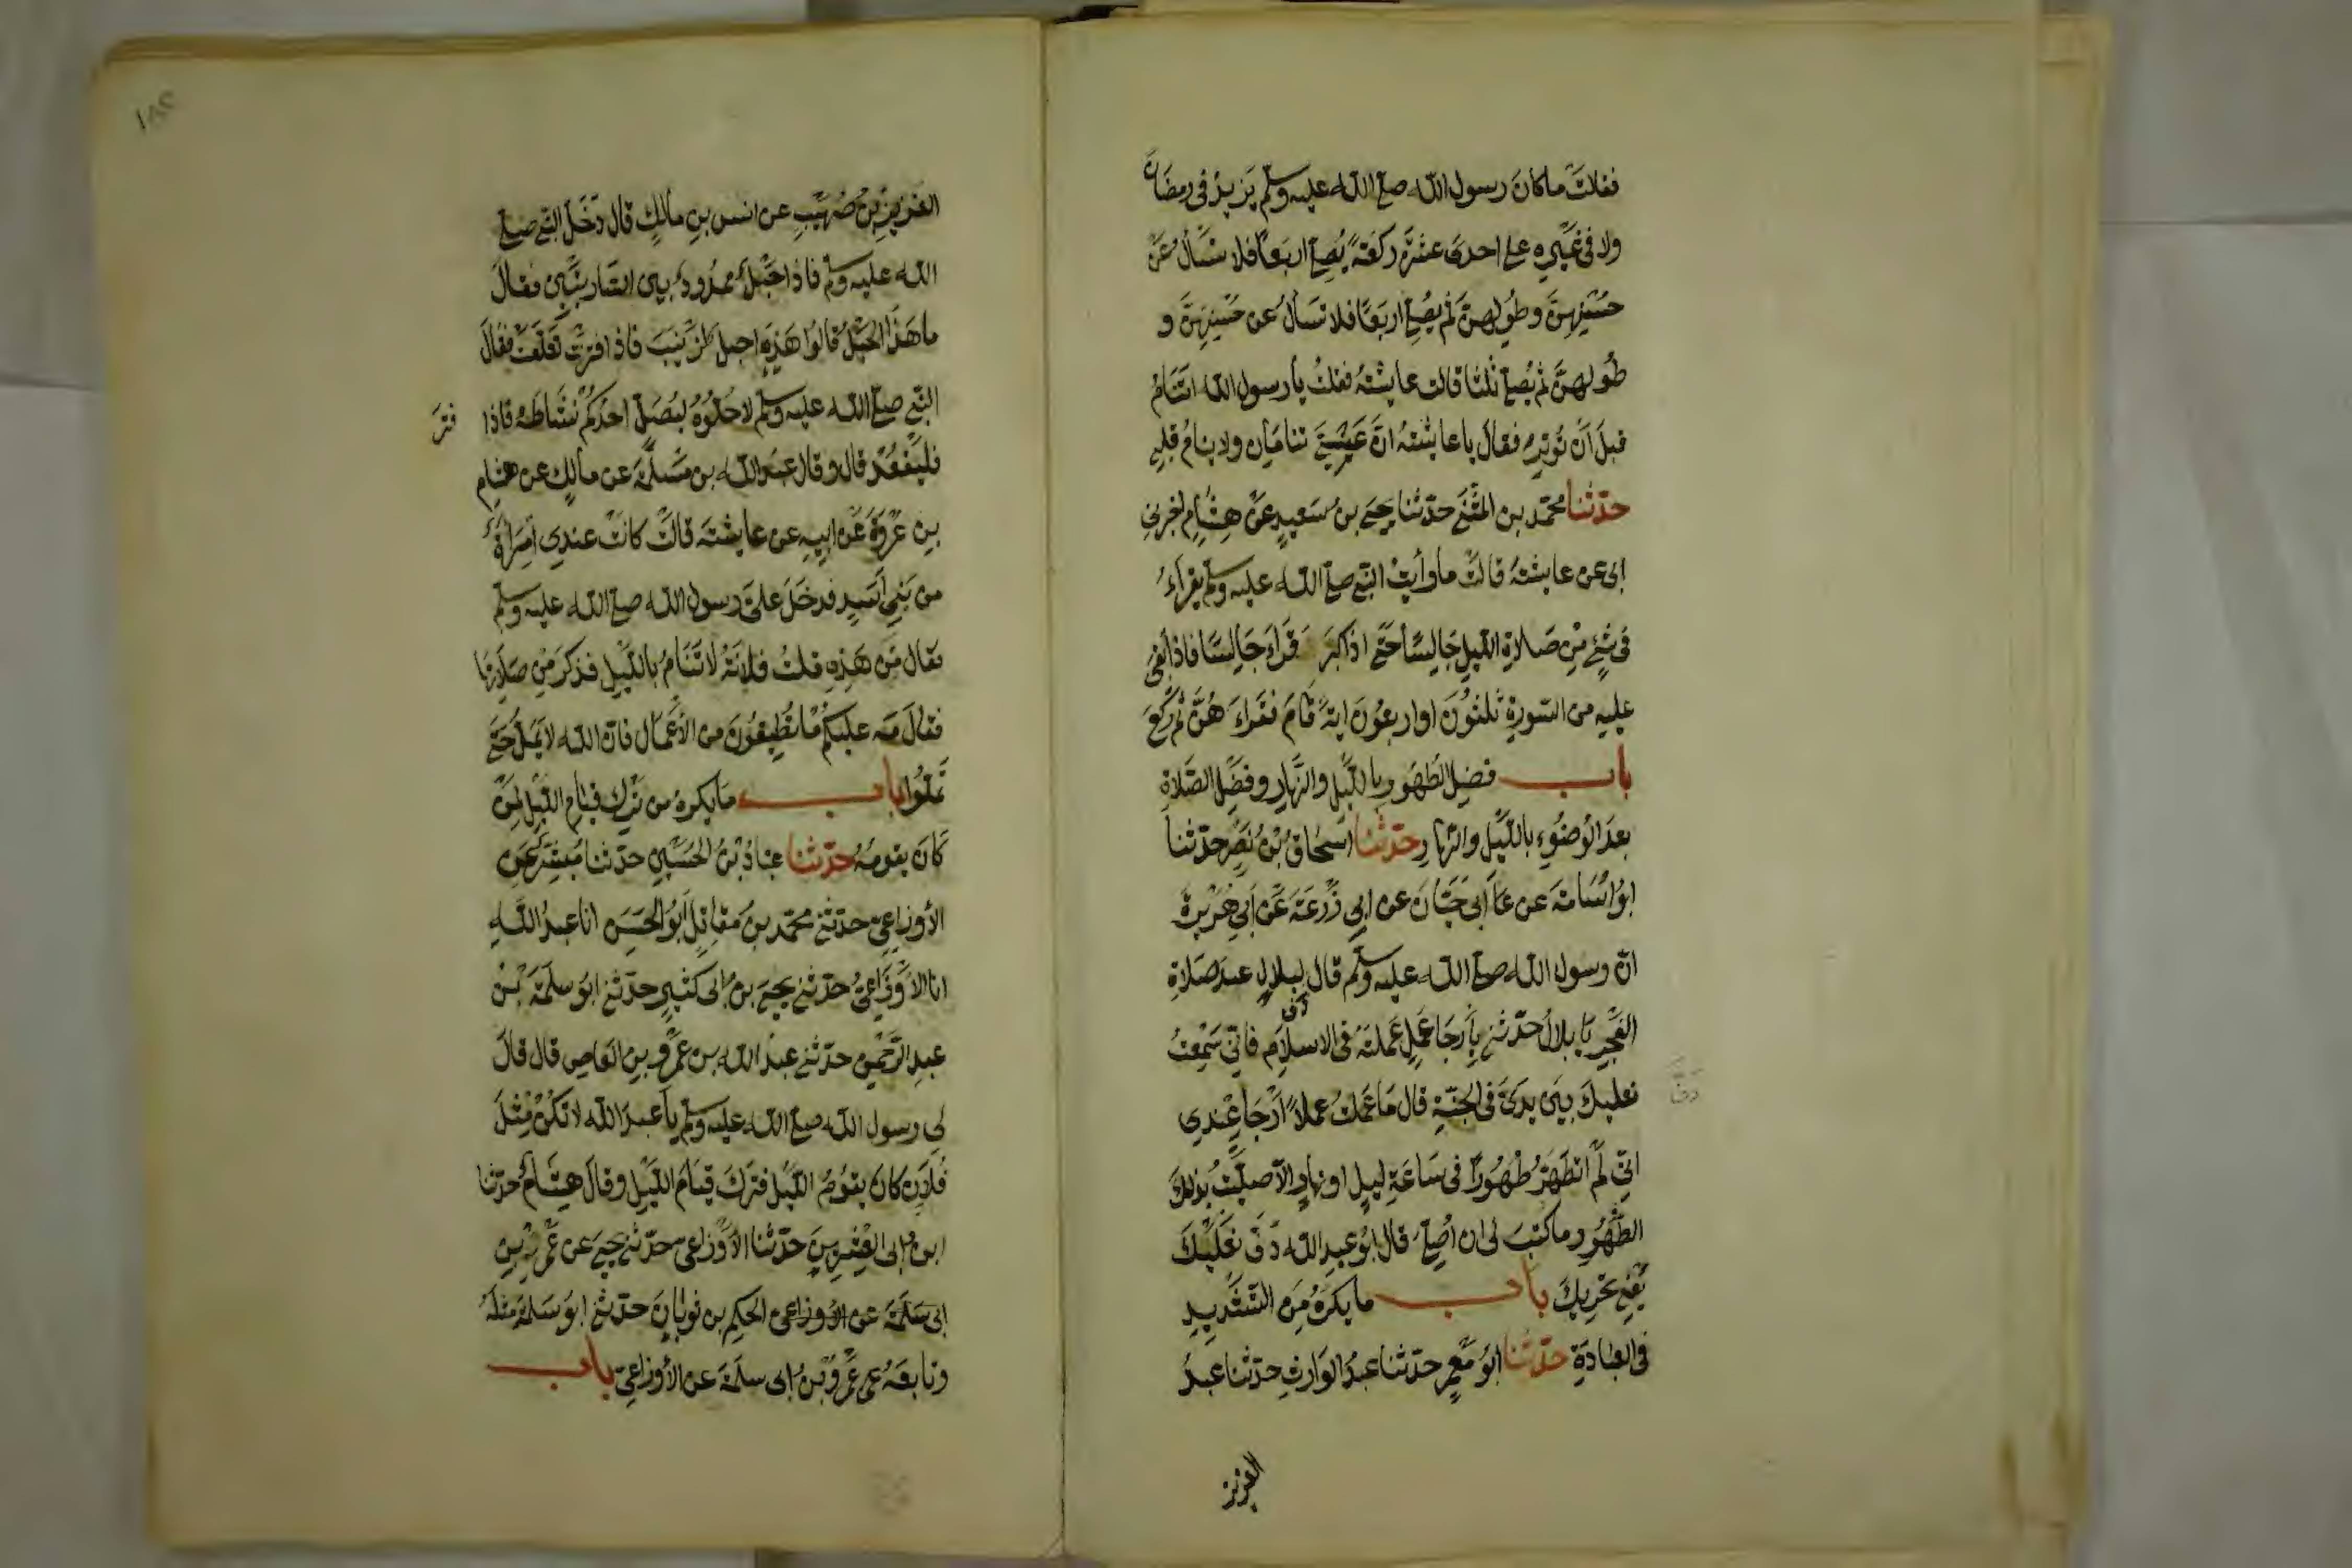 فقلت ما كان رسول الله صلى الله عليه وسلم يزيد في رمضان
ولا في غيره على احدى عشرة ركعة يصلي اربعا فلا تسأل عن
حسنهن وطولهن ثم يصلي اربعا فلا تسأل عن حسنهن و
طولهن ثم يصلي ثلثا قالت عايشة فقلت يا رسول الله اتنام
قبل أن توتر فقال يا عايشة ان عيني تنامان ولا ينام قلبي
حدثنا محمد بن المثنى حدثنا يحيى بن سعيد عن هشام اخبرني
ابي عن عايشة قالت ما رأيت النبي صلى الله عليه وسلم يقراء
في شئ من صلاة الليل جالسا حتى اذا كبر قراء جالسا فاذا بقي
عليه من السورة ثلثون او اربعون اية قام فقراء هن ثم ركع
باب فضل الطهور بالليل والنهار وفضل الصلاة
بعد الوضوء بالليل والنهار حدثنا اسحاق بن نصر حدثنا
ابو اسامة عن ابي حيان عن ابي زرعة عن أبي هريرة
ان رسول الله صلى الله عليه وسلم قال لبلال عند صلاة
الفجر يا بلال حدثني بأرجا عمل عملته في الاسلام فاني سمعت
دف
نعليك بين يدي في الجنة قال ما عملت عملا ارجا عندي
دف
اني لم اتطهر طهورا في ساعة ليل او نهار الا صليت بذلك
الطهور ما كتب لي ان أصلي قال ابو عبد الله دف نعليك
يعني تحريك باب ما يكره من التشديد
في العبادة حدثنا ابو معمر حدثنا عبد الوارث حدثنا عبد
العزيز
العزيز بن صهيب عن انس بن مالك قال دخل النبي صلى
الله عليه وسلم فاذا حبل ممدود بين الساريتين فقال
ما هذا الحبل قالوا هذا حبل لزينب فاذا فترت تعلقت فقال
النبي صلى الله عليه وسلم لا حلوه ليصل احدكم نشاطه فاذا
فتر
فليقعد قال وقال عبد الله بن مسلمة عن مالك عن هشام
بن عروة عن ابيه عن عايشة قالت كانت عندي امراة
من بني أسد فدخل على رسول الله صلى الله عليه وسلم
فقال من هذه قلت فلانة لا تنام بالليل فذكر من صلاتها
فقال مه عليكم ما تطيقون من الأعمال فان الله لا يمل حتى
تملوا باب ما يكره من ترك قيام الليل لمن
كان يقومه حدثنا عباد بن الحسين حدثنا مبشر عن
الأوزاعي حدثني محمد بن مقاتل ابو الحسن انا عبد الله
انا الاوزاعي حدثني يحيى بن ابي كثير حدثني ابو سلمة بن
عبد الرحمن حدثني عبد الله بن عمرو بن العاص قال قال
لي رسول الله صلى الله عليه وسلم يا عبد الله لا تكن مثل
فلان كان يقوم الليل فترك قيام الليل وقال هشام حدثنا
ابن ابي العشرين حدثنا الاوزاعي حدثني يحيى عن عمر بن
ابي سلمة عن الاوزاعي الحكم بن ثوبان حدثني ابو سلمة مثله
وتابعه عمرو بن ابي سلمة عن الأوزاعي باب